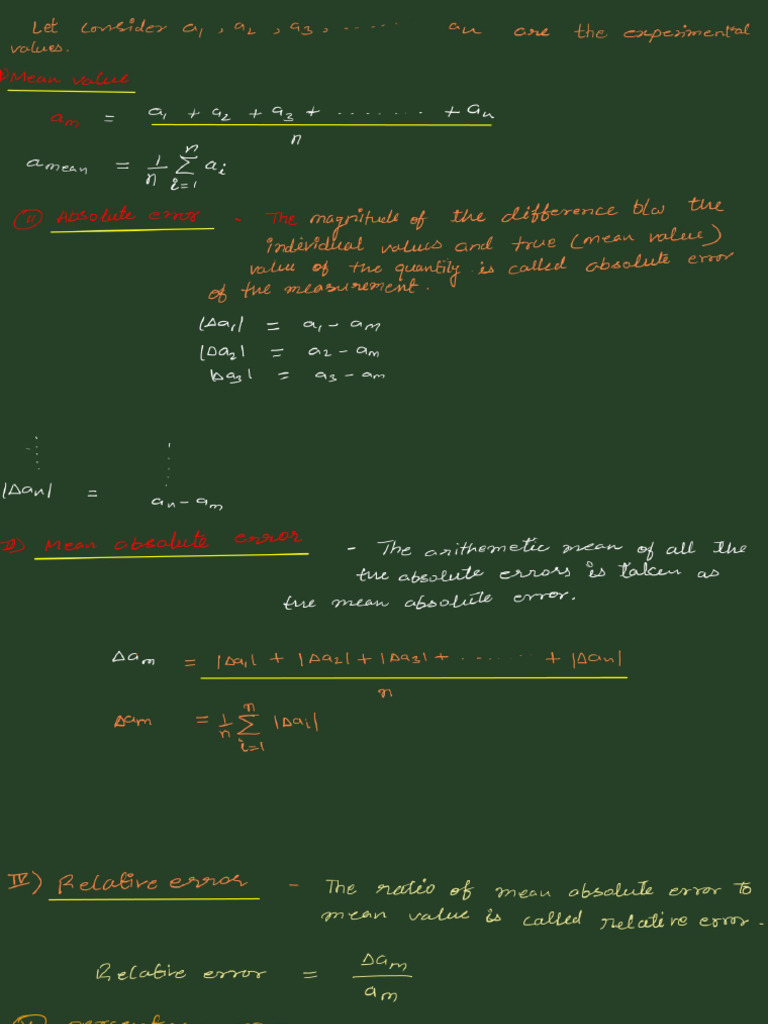 Let consider a₁, a₂, a₃, ...... aₙ are the experimental
values.
I) Mean value
aₘ = (a₁ + a₂ + a₃ + ........ + aₙ) / n
a mean = 1/n Σ_{i=1}^{n} aᵢ
(II) Absolute error - The magnitude of the difference b/w the
individual values and true (mean value)
value of the quantity is called absolute error
of the measurement.
|Δa₁| = a₁ - aₘ
|Δa₂| = a₂ - aₘ
|Δa₃| = a₃ - aₘ
|Δaₙ| = aₙ - aₘ
Mean absolute error - The arithemetic mean of all the
the absolute errors is taken as
the mean absolute error.
Δaₘ = (|Δa₁| + |Δa₂| + |Δa₃| + ........ + |Δaₙ|) / n
Δaₘ = 1/n Σ_{i=1}^{n} |Δaᵢ|
IV) Relative error - The ratio of mean absolute error to
mean value is called relative error.
Relative error = Δaₘ / aₘ